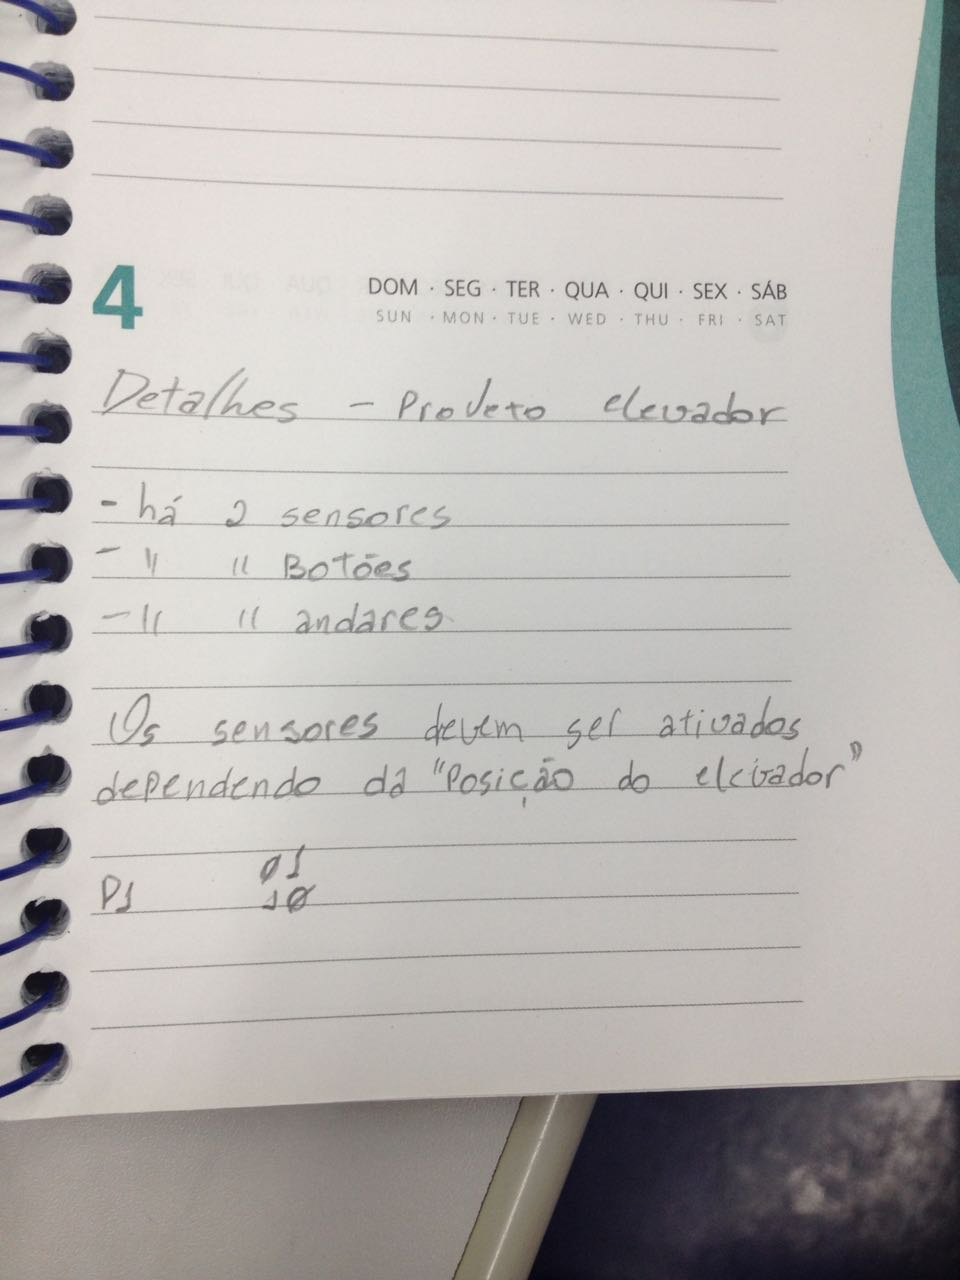 4
DOM · SEG · TER · QUA · QUI · SEX · SÁB
SUN · MON · TUE · WED · THU · FRI · SAT
Detalhes - Projeto elevador
- há 2 sensores
- " " Botões
- " " andares
Os sensores devem ser ativados
dependendo da "Posição do elevador"
01
P1 10